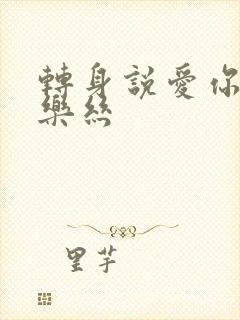 轉身說愛你
樂絲
里芋